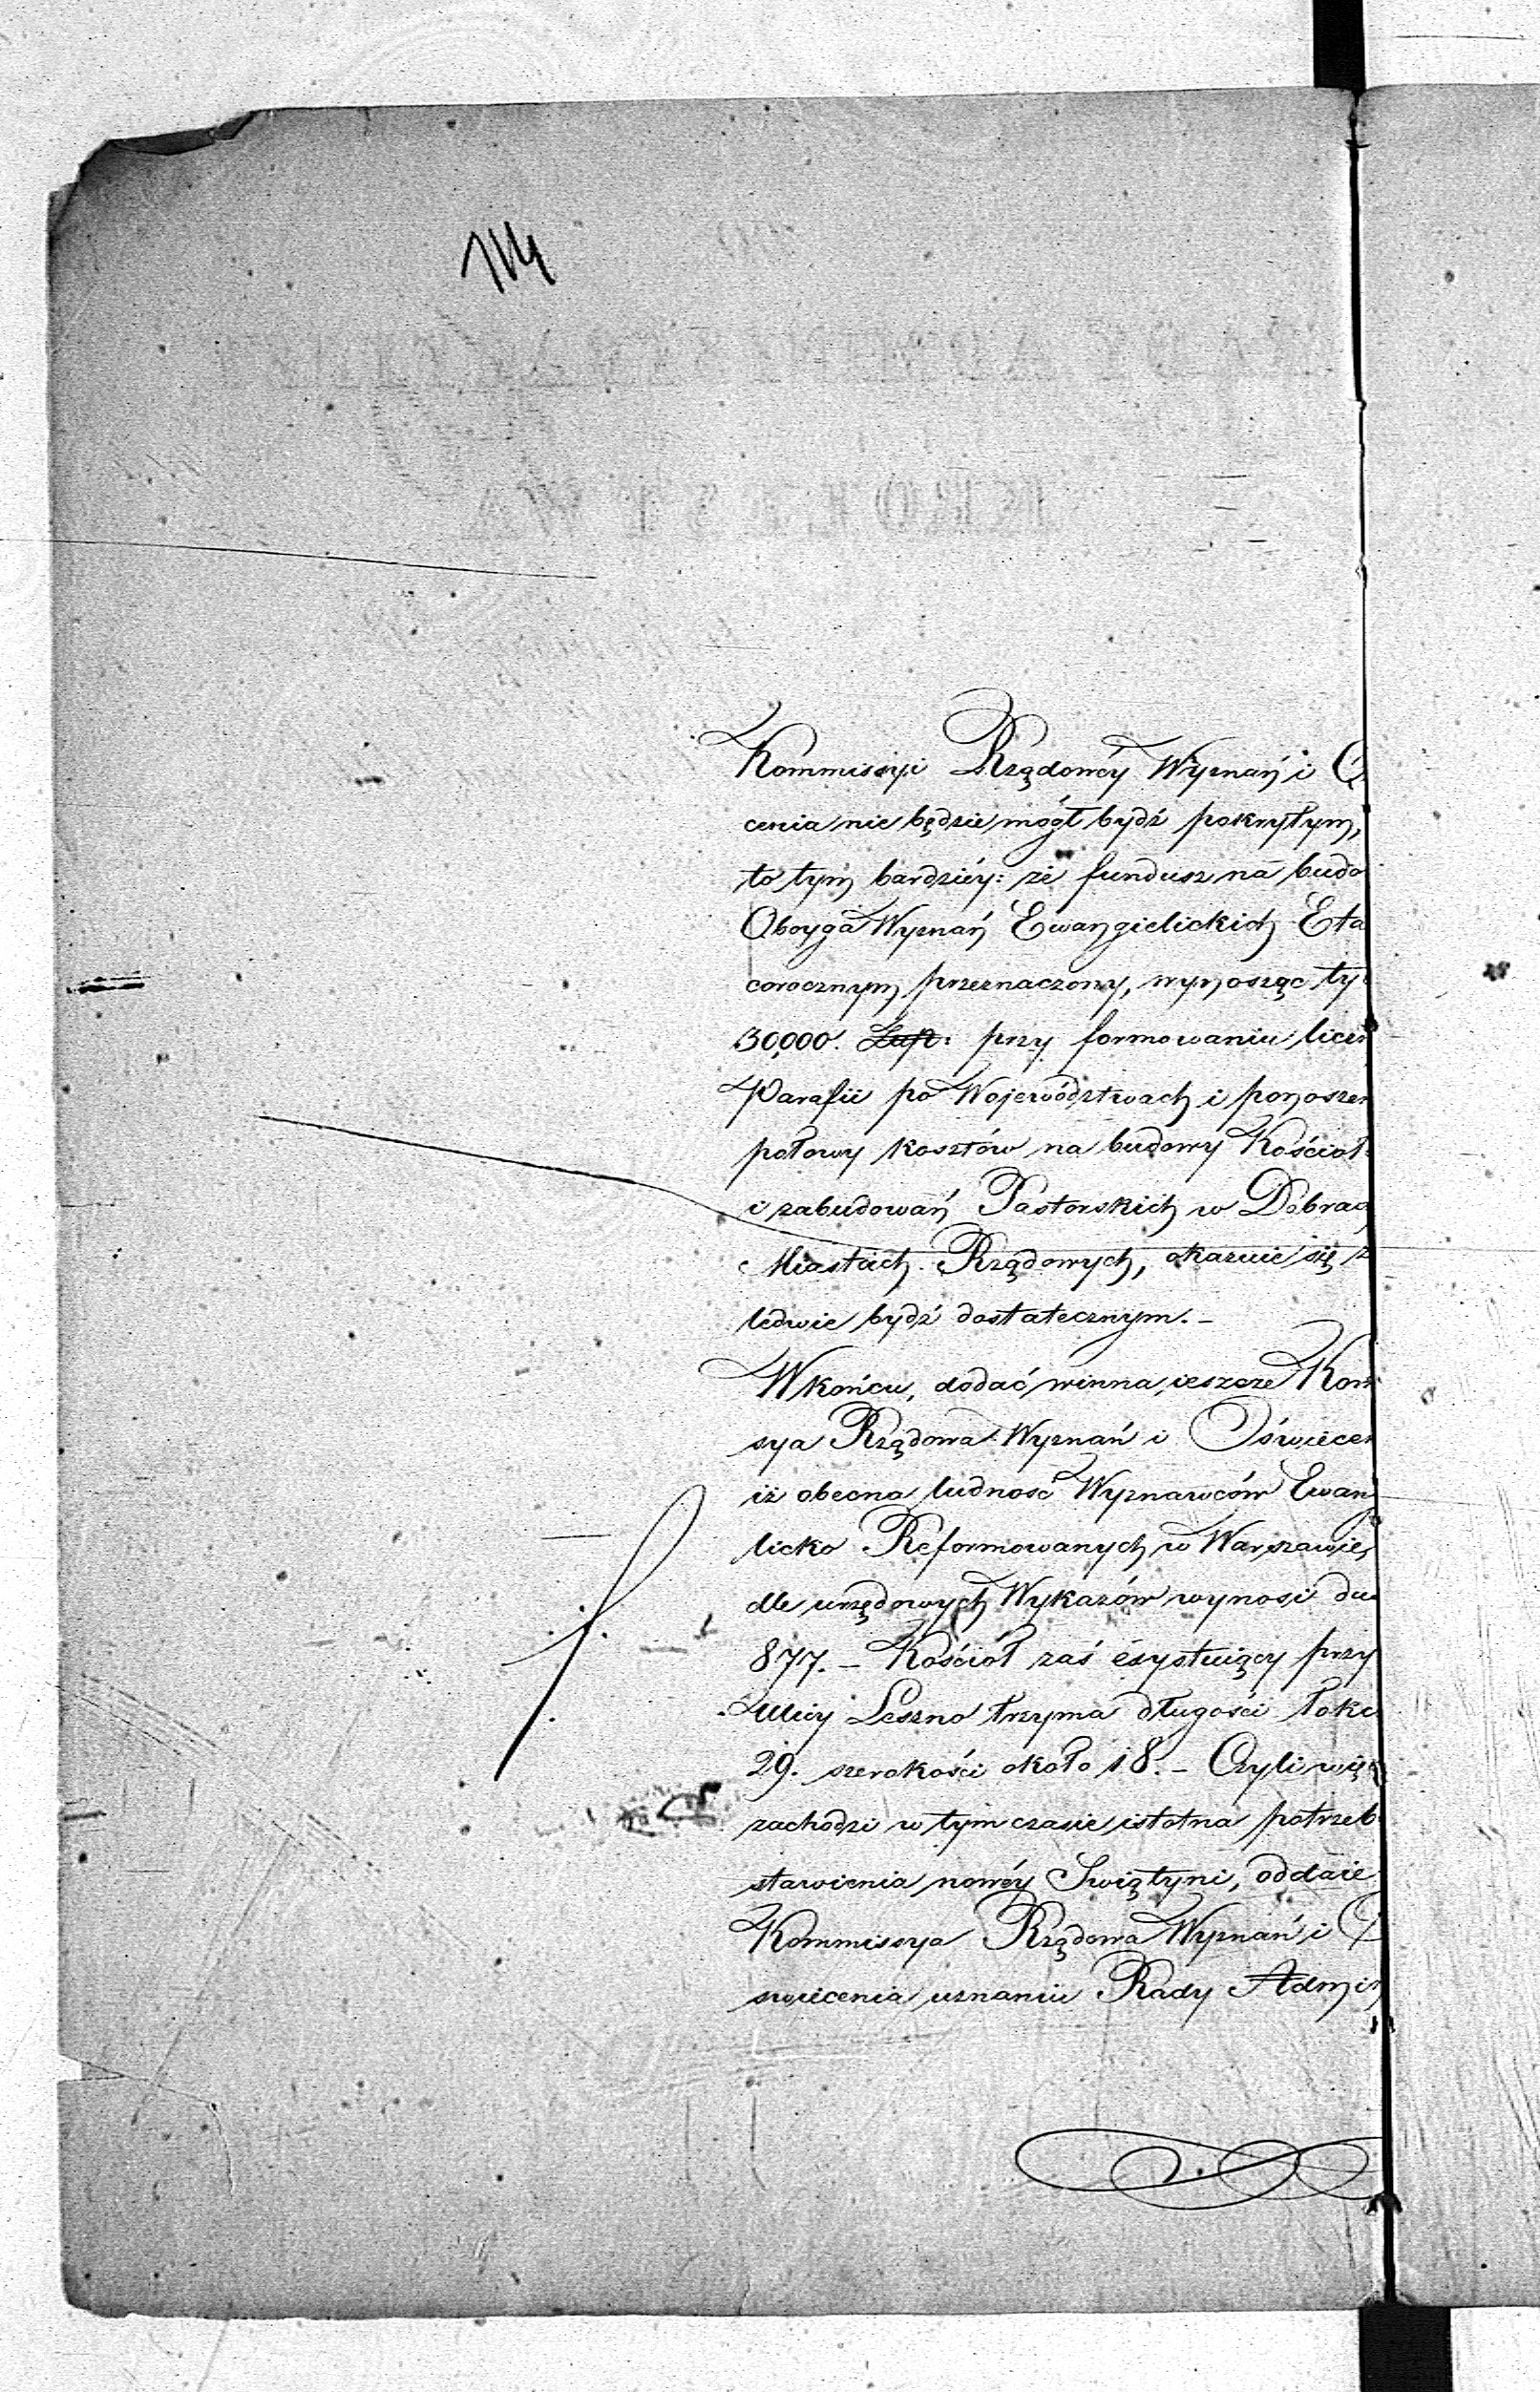 114
Kommissyi Rządowéy Wyznań i
cenia nie będzie mógł bydź pokrytym,
to tym bardziéy: że fundusz na budo
Oboyga Wyznań Ewangielickich Eta
corocznym przeznaczony, wynosząc ty
30,000. przy formowaniu licz
Parafii po Województwach i ponoszen
połowy kosztów na budowy Kościoł
i zabudowań Pastorskich w Dobrac
Miastach Rządowych, okazuie się z
ledwie bydź dostatecznym. -
W końcu, dodać winna ieszcze Kom
sya Rządowa Wyznań i Oświecen
iż obecna ludność Wyznawców Ewan
licko Reformowanych w Warszawie,
dle urzędowych Wykazów wynosi du
877. - Kościół zaś exystuiący przy
Ulicy Leszno trzyma długości łokc
29. szerokości około 18. - Czyli więc
zachodzi w tym czasie istotna potrzeb
stawienia nowéy Swiątyni, oddaie
Kommissya Rządowa Wyznań i O
swiecenia uznaniu Rady Admin